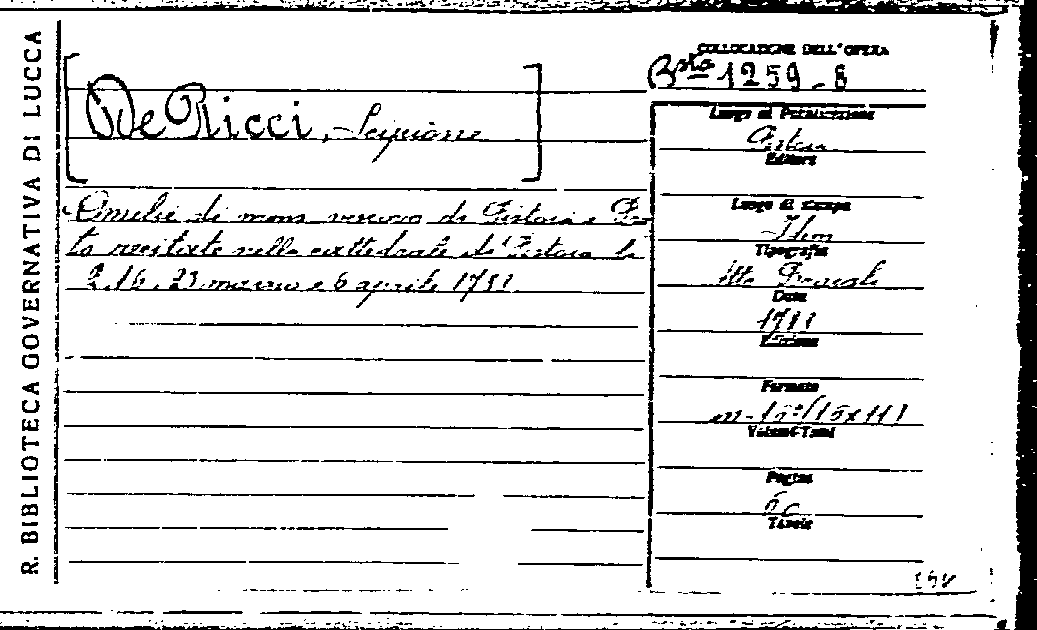 R. BIBLIOTECA GOVERNATIVA DI LUCCA
COLLOCAZIONE DELL'OPERA
Bta 1259-8
[De Ricci, Scipione]
Omelie di mons vescovo di Pistoia e Pra
to recitate nella cattedrale di Pistoia le
2, 16, 23 marzo e 6 aprile 1781
Luogo di Pubblicazione
Pistoia
Editore
Luogo di stampa
Idem
Tipografia
Atto Bracali
Data
1781
Edizione
Formato
Volumi-Tomi
Pagine
Tavole